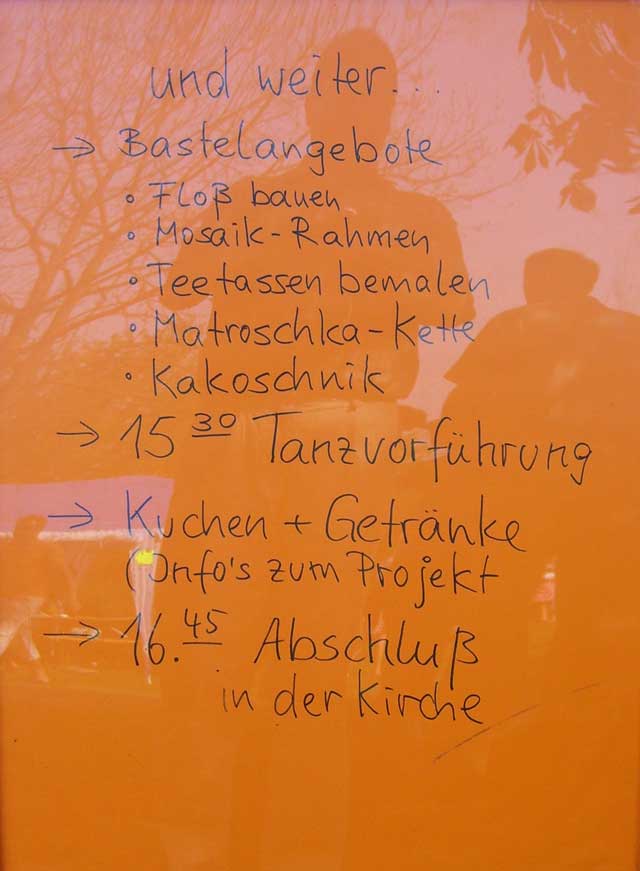 und weiter...
→ Bastelangebote
• Floß bauen
• Mosaik-Rahmen
• Teetassen bemalen
• Matroschka-Kette
• Kakoschnik
→ 15 30 Tanzvorführung
→ Kuchen + Getränke
(Info's zum Projekt
→ 16.45 Abschluß
in der Kirche